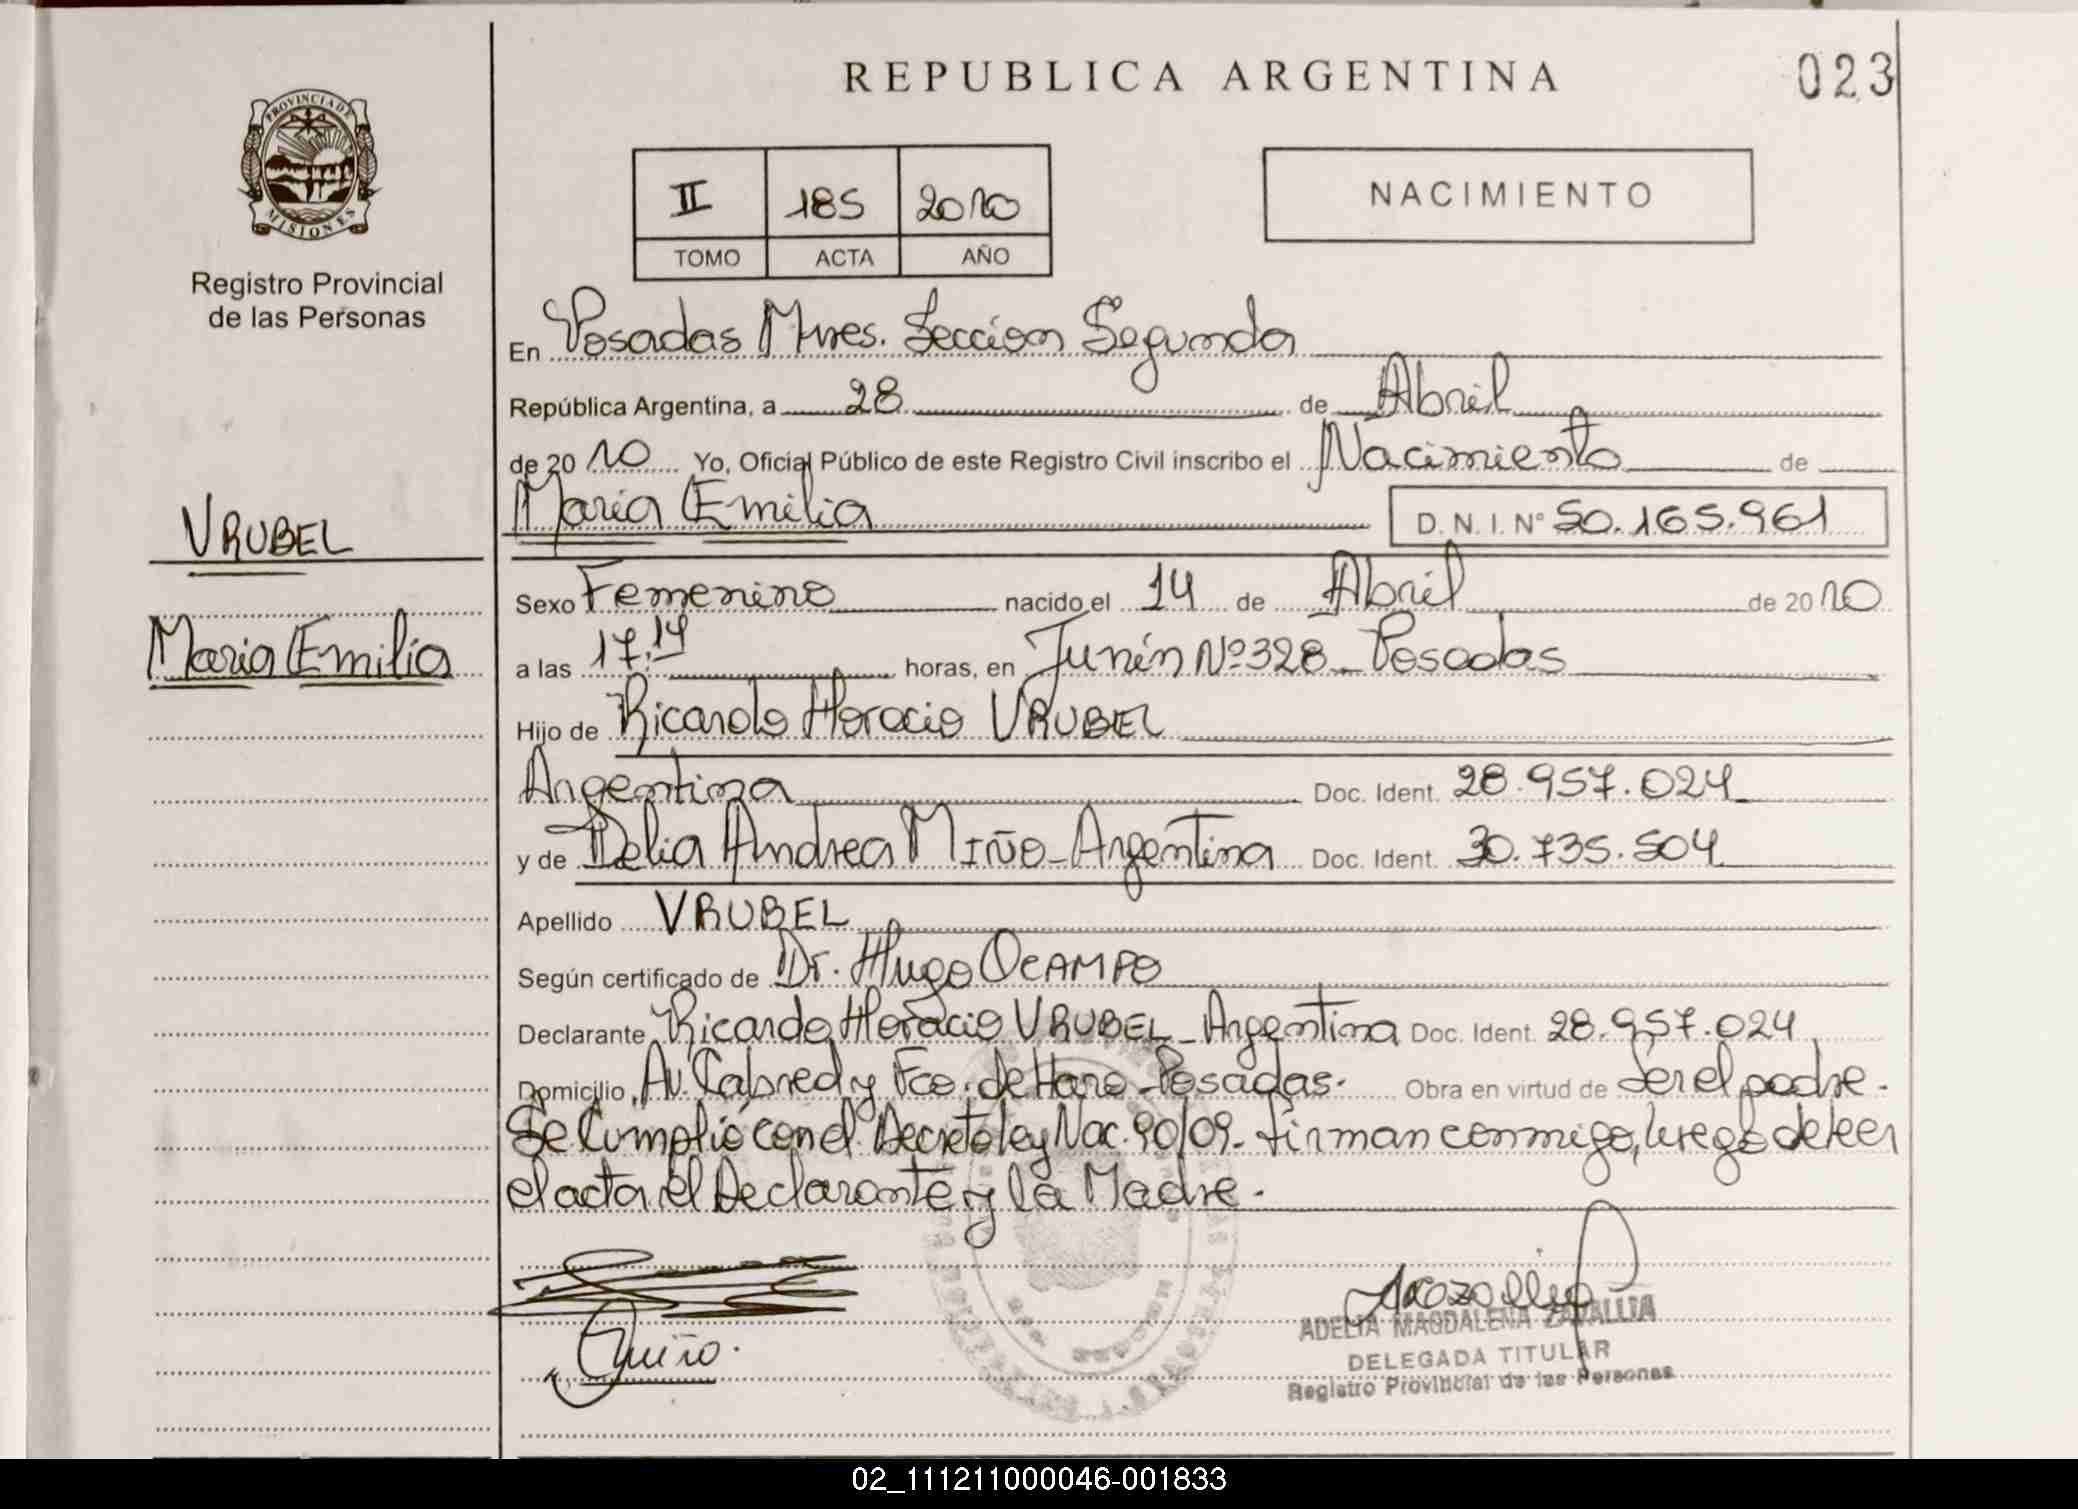 REPUBLICA ARGENTINA
023
PROVINCIA DE
MISIONES
Registro Provincial
de las Personas
II 185 2010
TOMO ACTA AÑO
NACIMIENTO
En Posadas Mnes. Seccion Segunda
República Argentina, a 28 de Abril
de 2010 Yo, Oficial Público de este Registro Civil inscribo el Nacimiento de
Maria Emilia D. N. I. Nº 50.165.961
VRUBEL
Maria Emilia
Sexo Femenino nacido el 14 de Abril de 2010
a las 17.14 horas, en Junín Nº 328 - Posadas
Hijo de Ricardo Horacio VRUBEL
Argentina Doc. Ident. 28.957.024
y de Delia Andrea MIÑO - Argentina Doc. Ident. 30.735.504
Apellido VRUBEL
Según certificado de Dr. Hugo OCAMPO
Declarante Ricardo Horacio VRUBEL - Argentina Doc. Ident. 28.957.024
Domicilio Av. Cabred y Fco. de Haro - Posadas. Obra en virtud de Ser el padre.
Se Cumplió con el Decreto ley Nac. 90/09 - firman conmigo, luego de leer
el acta el Declarante y la Madre.
ADELIA MAGDALENA ZAVALLIA
DELEGADA TITULAR
Registro Provincial de las Personas
02_111211000046-001833